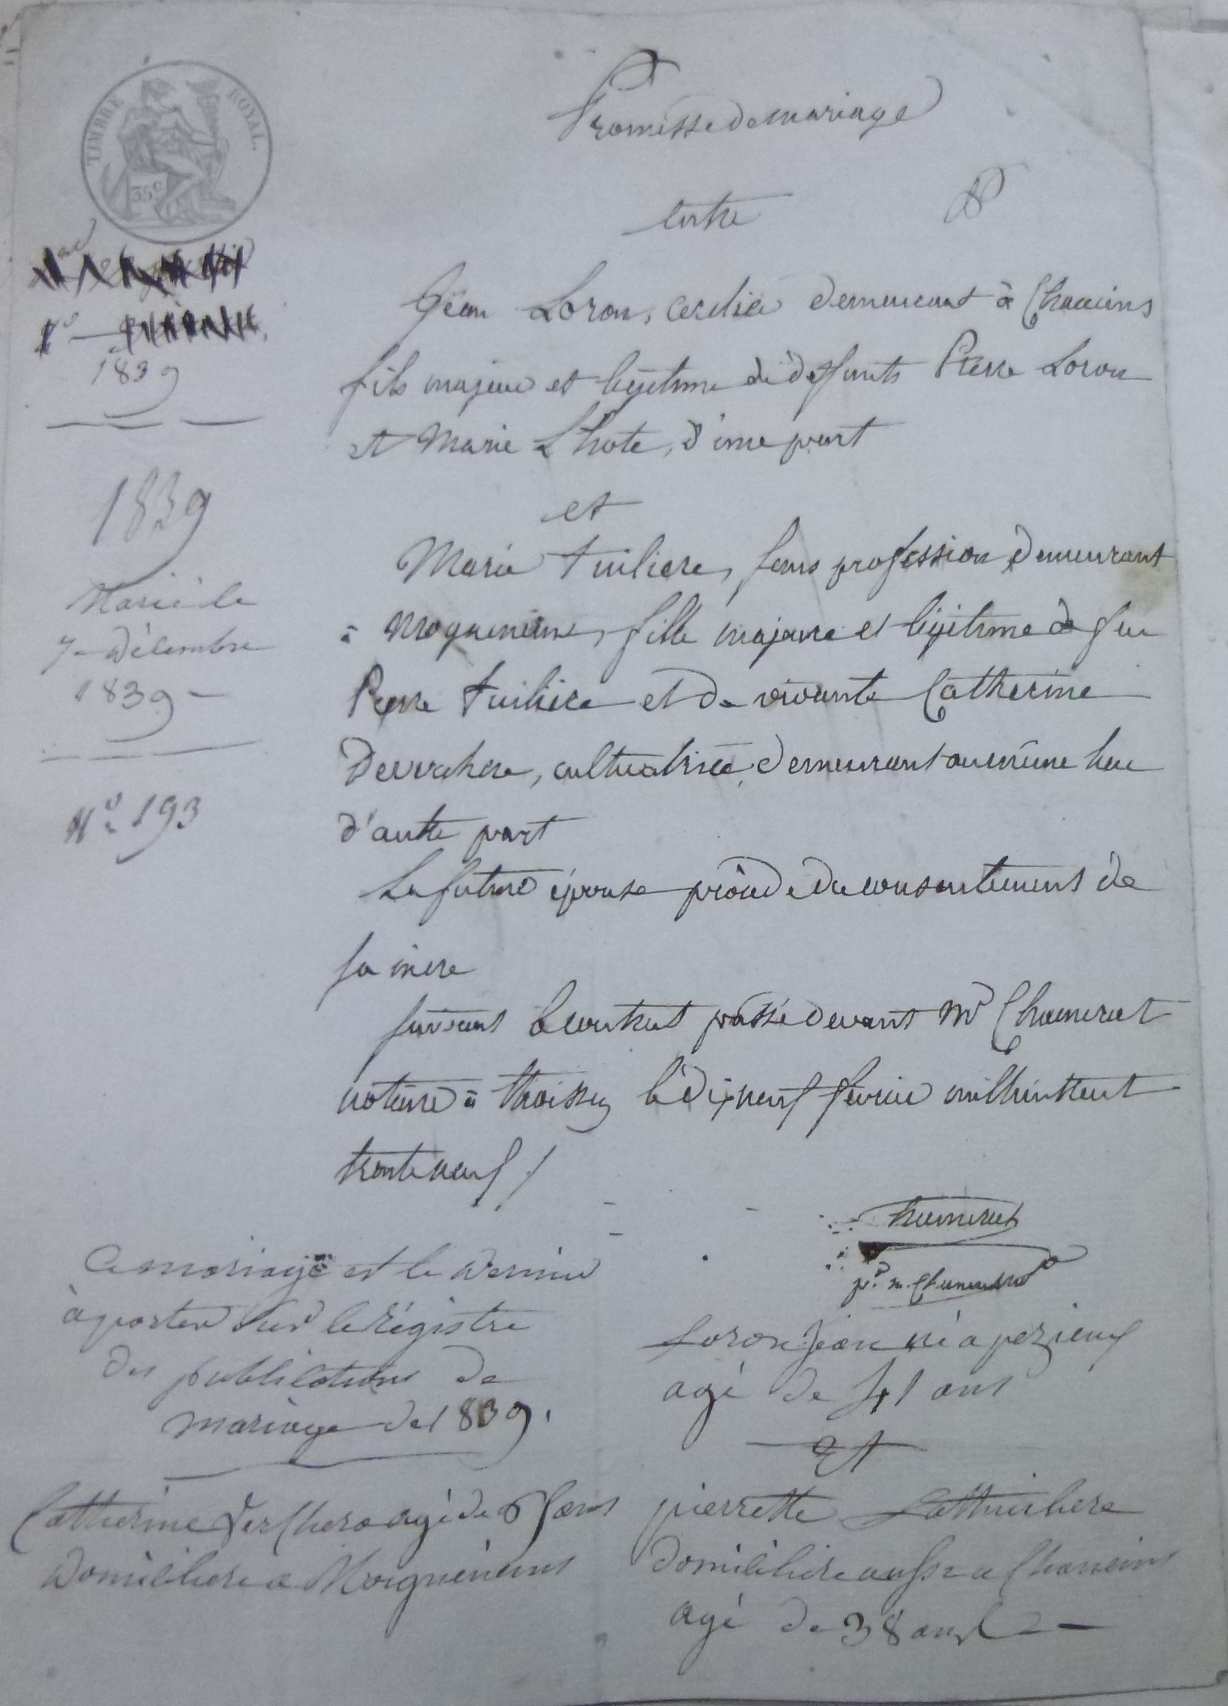 TIMBRE ROYAL
35c
Promesse de mariage
Entre
Jean Loron, demeurant à Chaneins
fils majeur et légitime de deffunts Pierre Loron
et Marie Lhote, d'une part
et
Marie Tuiliere, sans profession demeurant
à Mogneneins, fille majeure et légitime de feu
Pierre Tuiliere et de vivante Catherine
cultivatrice, demeurant au même lieu
d'autre part
La future épouse procède du consentement de
sa mere
suivant le contrat passé devant Me Chameras
notaire à Thoissey le dix neuf février mil huit cent
trente neuf /
1839
1839
Marié le
7 Décembre
1839
No 193
pr. m. 
Ce mariage est le dernier
à porter sur le régistre
des publications de
mariage de 1839.
Loron jean né a pezieux
agé de 41 ans
Et
pierrette Lathuiliere
domiciliere aussi a Chaneins
agé de 38 ans
Catherine agé de ans
domiciliere a Mogneneins